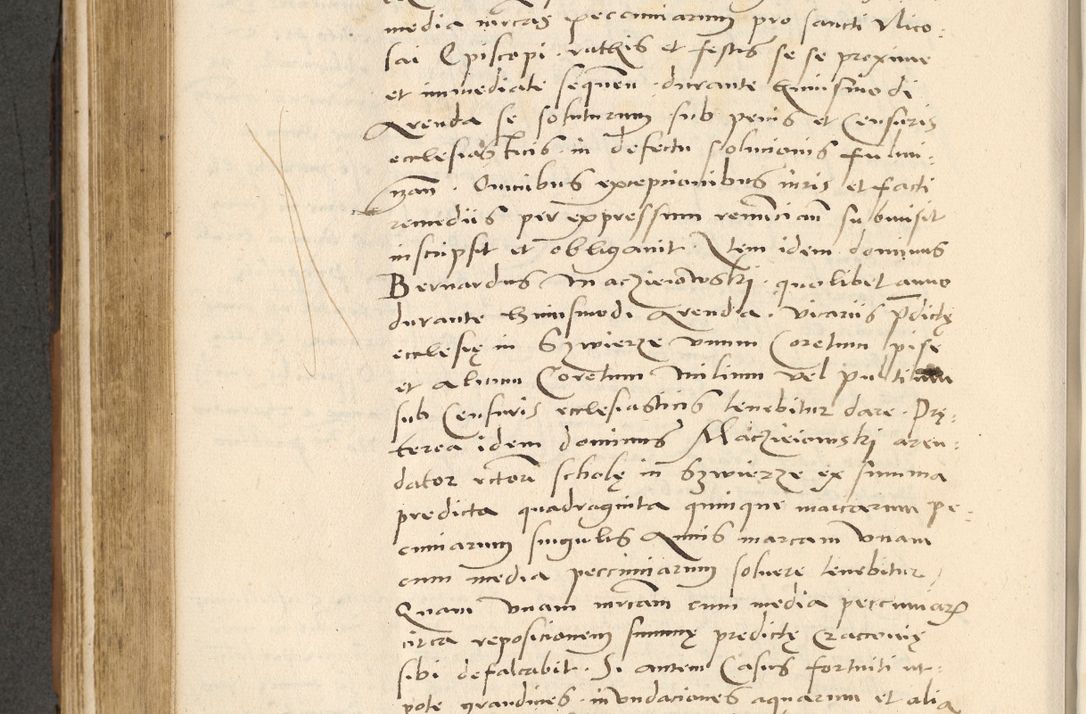 media mrcas peccuniarum pro sancti Nico-
lai Episcopi rathis et festis se se proxime
et immediate sequen durante huiusmodi
Arenda se soluturum sub penis et Censuris
ecclesiasticis in defectu solucionis fulmi-
nan. Omnibus exceptionibus iuris et facti
remediis per expressum renunciatum submisit
inscripsit et obligauit. Item idem dominus
Bernardus Maczieiowski quolibet anno
durante huiusmodi Arenda. Vicariis predictę
ecclesię in Szwierze vnum Coretum pise
et alium Coretum milium vel pulti
sub Censuris ecclesiasticis tenebitur dare. Prę-
terea idem dominus Maczieiowski aren-
dator rectori scholę in Szwierze ex summa
predicta quadraginta quinque marcarum pe-
cuniarum singulis Annis marcam vnam
cum media peccuniarum soluere tenebitur
Quam vnam mrcam cum media peccuniar
circa reposicionem summę predictę Cracouię
sibi defalcabit. Si autem Casus fortuiti ut-
pote grandines inundaciones aquarum et alia